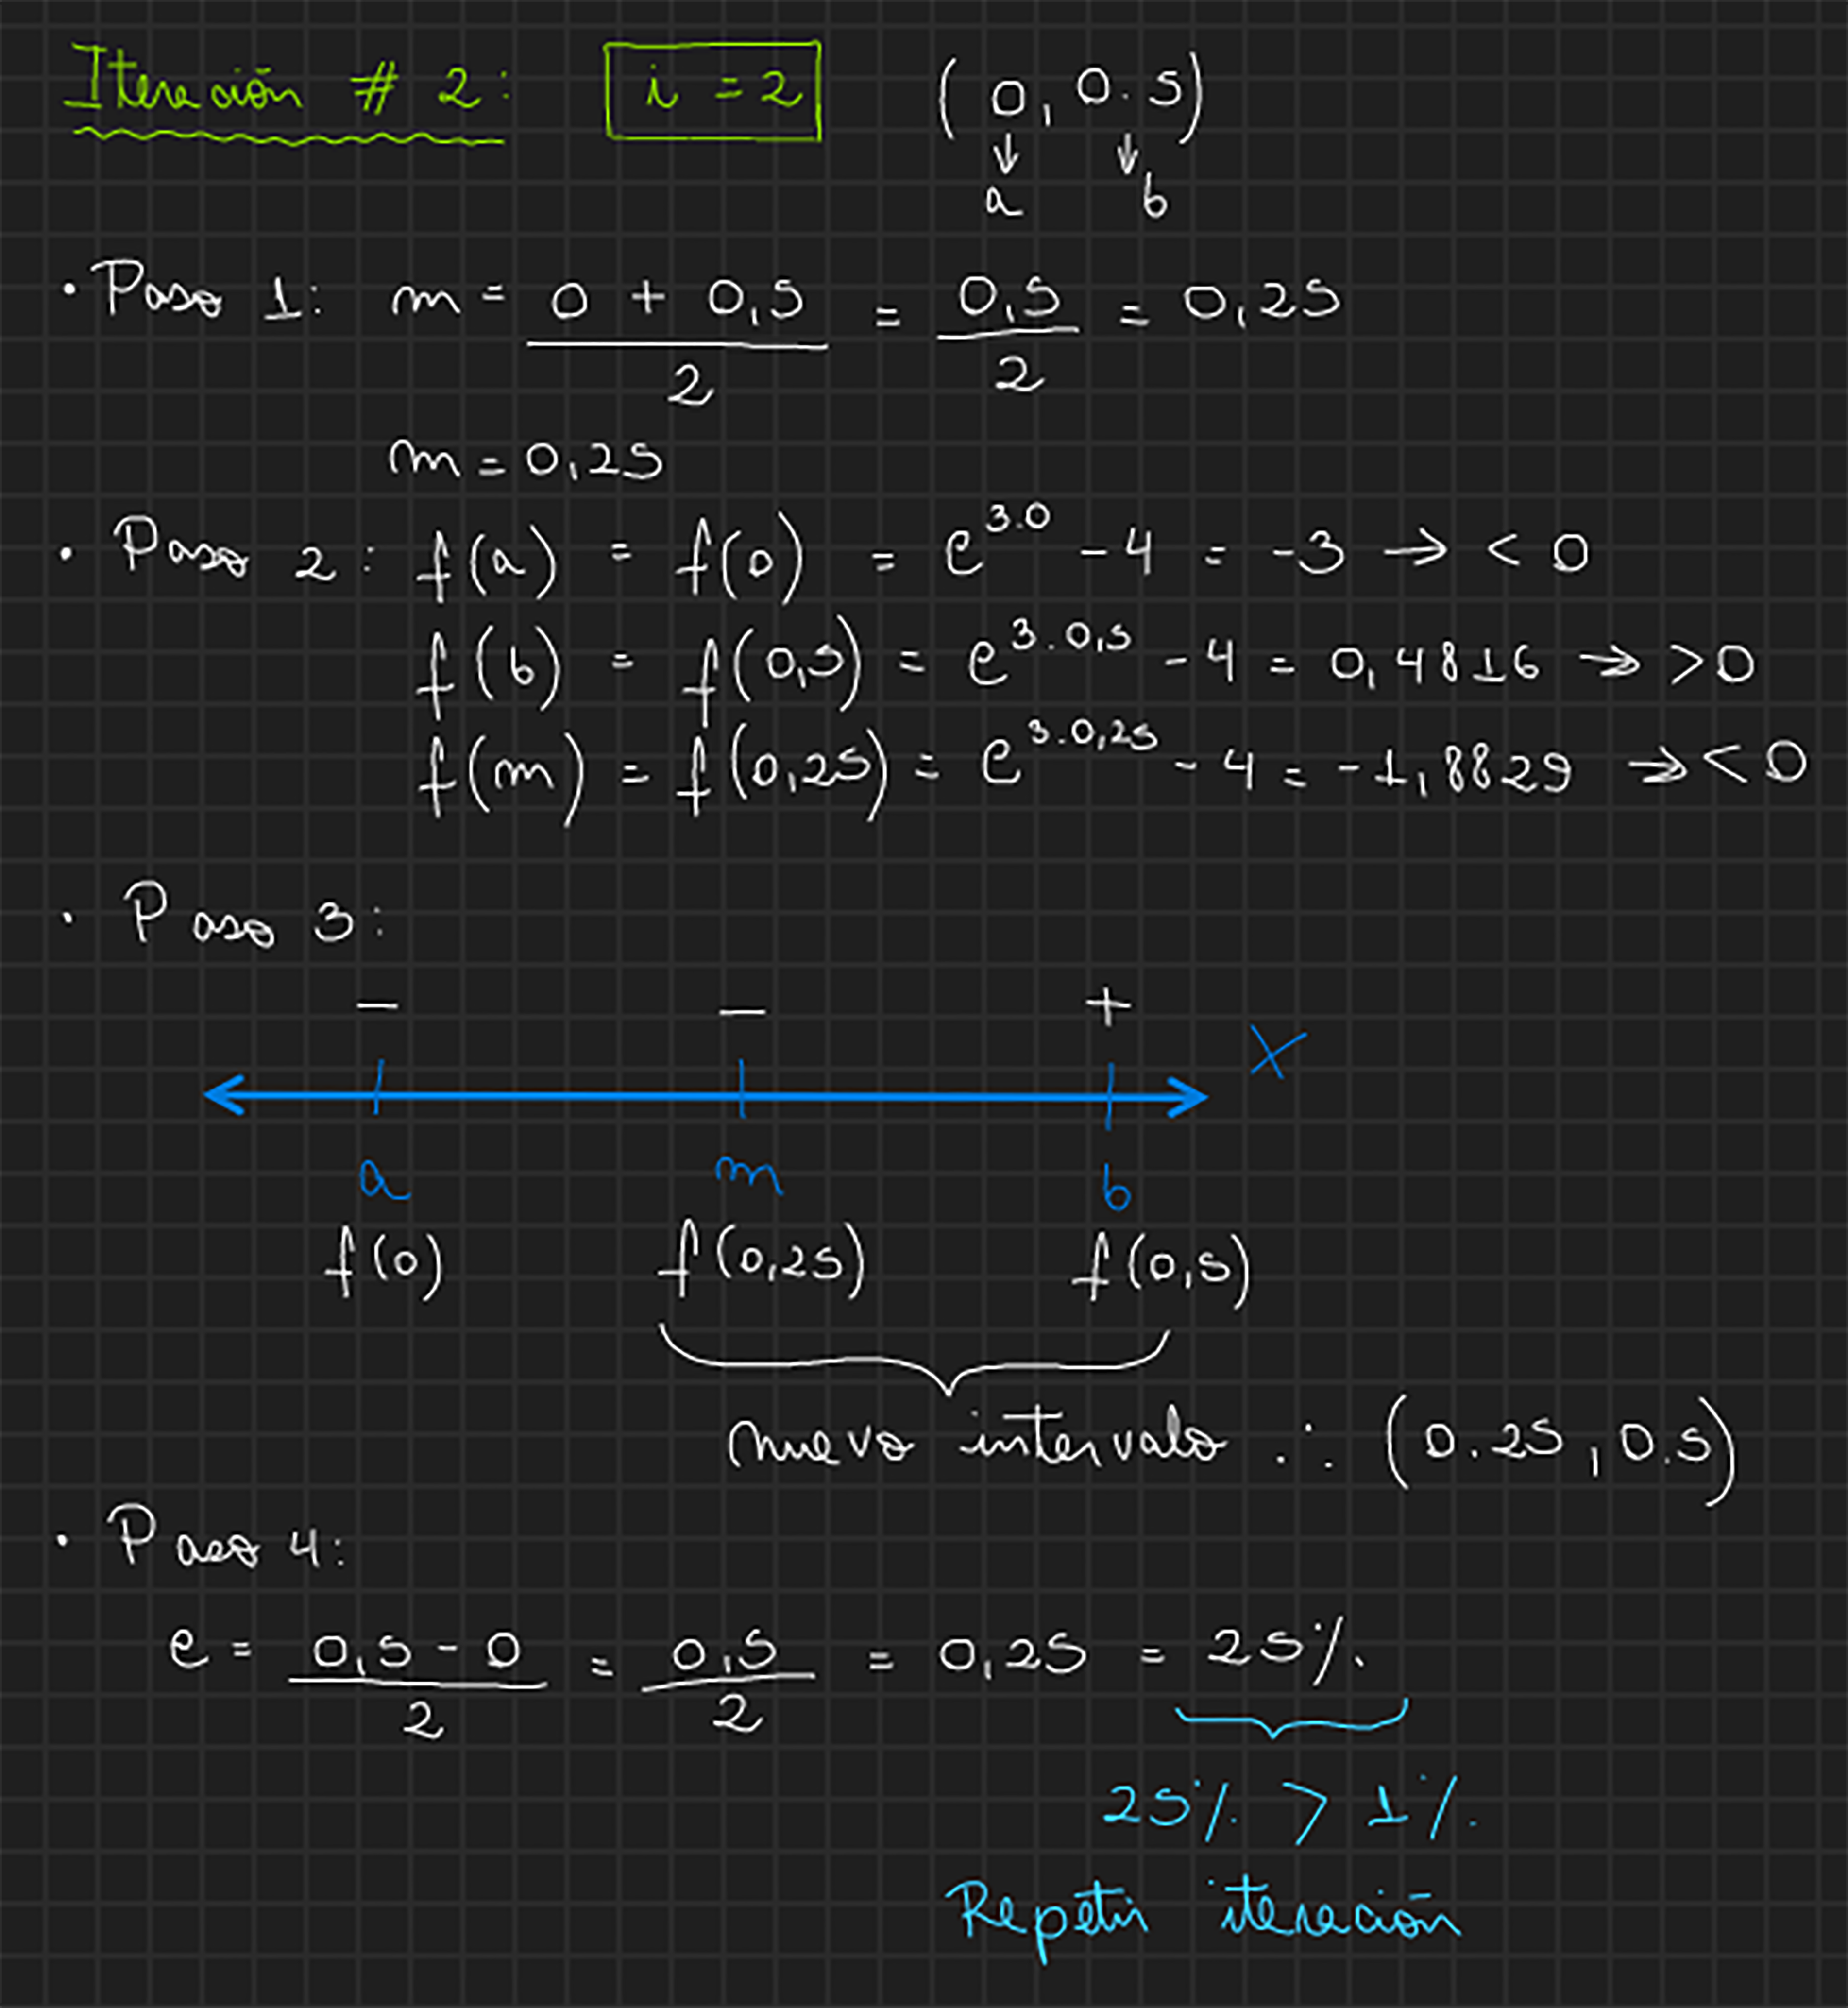 Iteración # 2: i = 2 (0, 0.5)
↓ ↓
a b
• Paso 1: m = (0 + 0,5)/2 = 0,5/2 = 0,25
m = 0,25
• Paso 2: f(a) = f(0) = e^3.0 - 4 = -3 → < 0
f(b) = f(0,5) = e^3.0,5 - 4 = 0,4816 → > 0
f(m) = f(0,25) = e^3.0,25 - 4 = -1,8829 → < 0
• Paso 3:
- - +
X
a m b
f(0) f(0,25) f(0,5)
nuevo intervalo ∴ (0.25, 0.5)
• Paso 4:
e = (0,5 - 0)/2 = 0,5/2 = 0,25 = 25%.
25% > 1%.
Repetir iteración